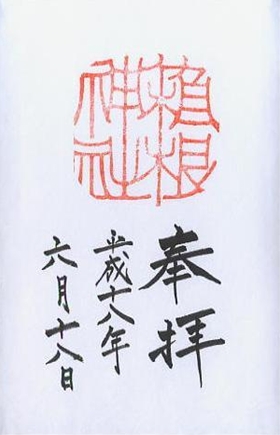 神社
奉拝
平成十八年
六月十八日